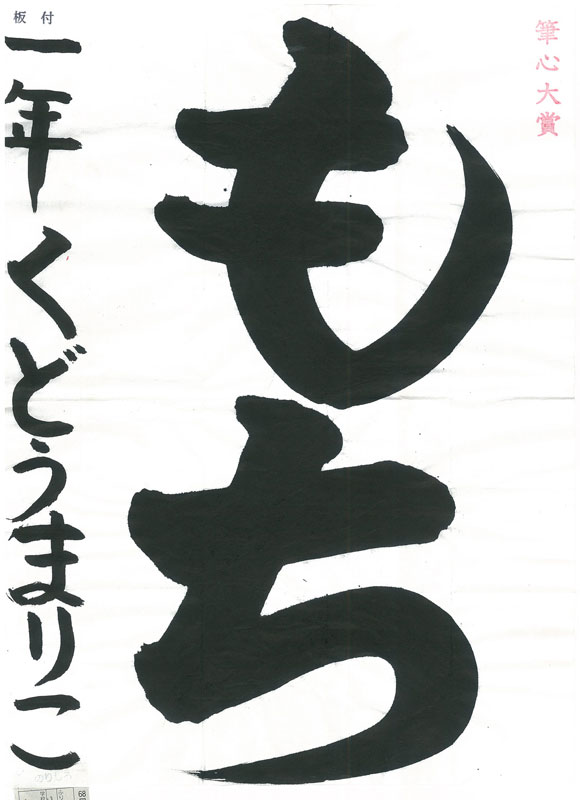 筆心大賞
もち
板付
一年くどうまりこ
のりしろ